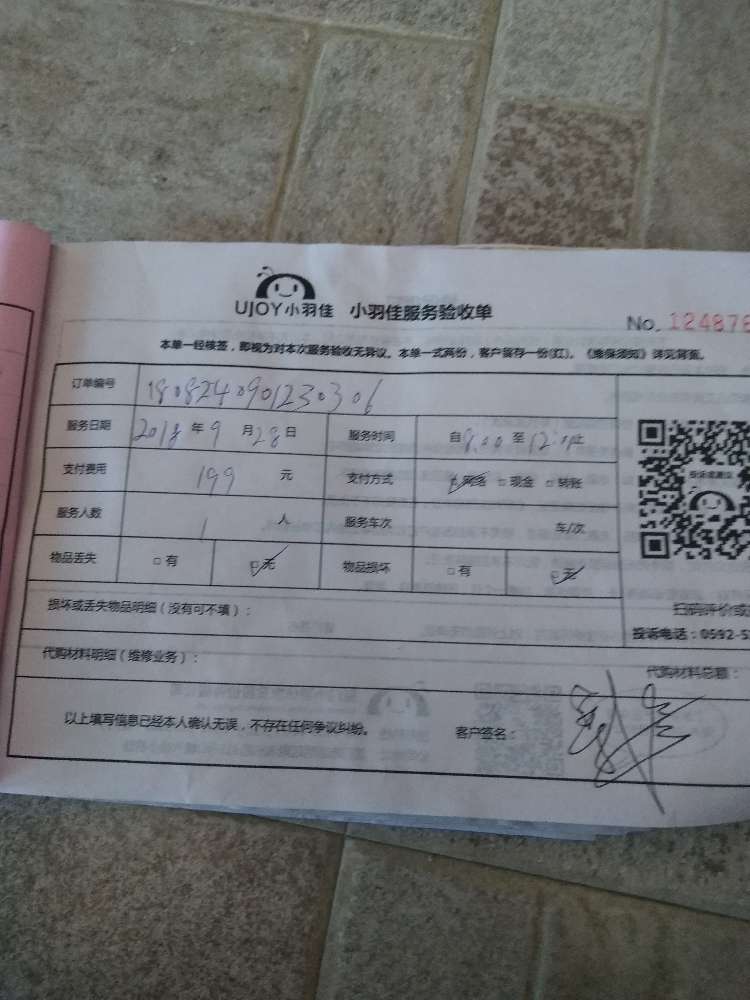 UJOY小羽佳 小羽佳服务验收单
No. 124876
本单一经核签，即视为对本次服务验收无异议。本单一式两份，客户留存一份(红)。《维保须知》详见背面。
订单编号 1808240901230306
服务日期 2018年9月28日 服务时间 自8:00至12:00止
支付费用 199元 支付方式 网络 现金 转账
服务人数 1人 服务车次 车/次
物品丢失 有 无 物品损坏 有 无
投诉或建议
扫码评价或
损坏或丢失物品明细（没有可不填）：
投诉电话：0592-5
代购材料明细（维修业务）： 代购材料总额：
以上填写信息已经本人确认无误，不存在任何争议纠纷。 客户签名：